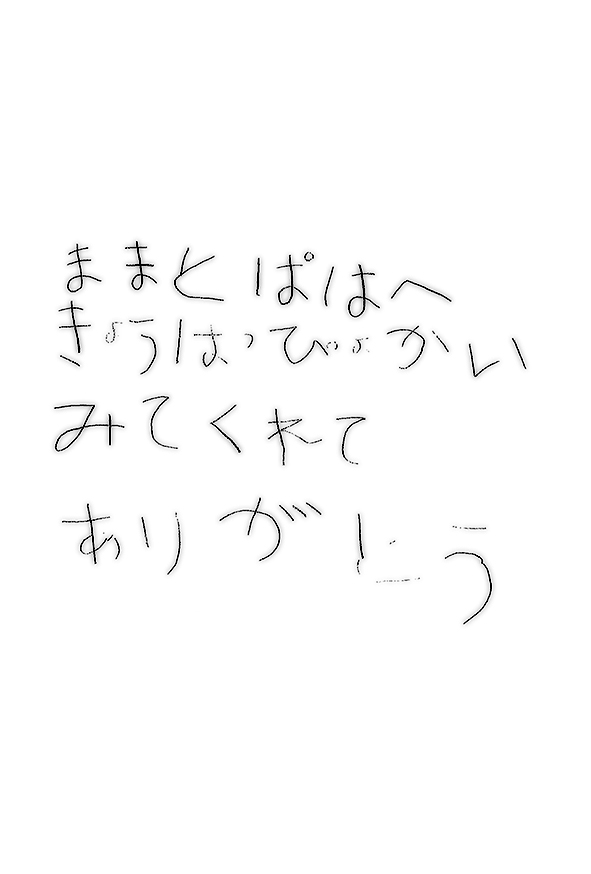 ままとぱはへ
きょうはっぴょかい
みてくれて
ありがとう